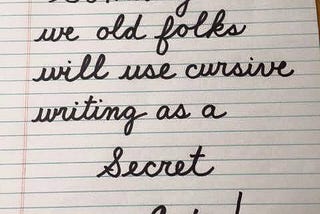 we old folks
will use cursive
writing as a
Secret